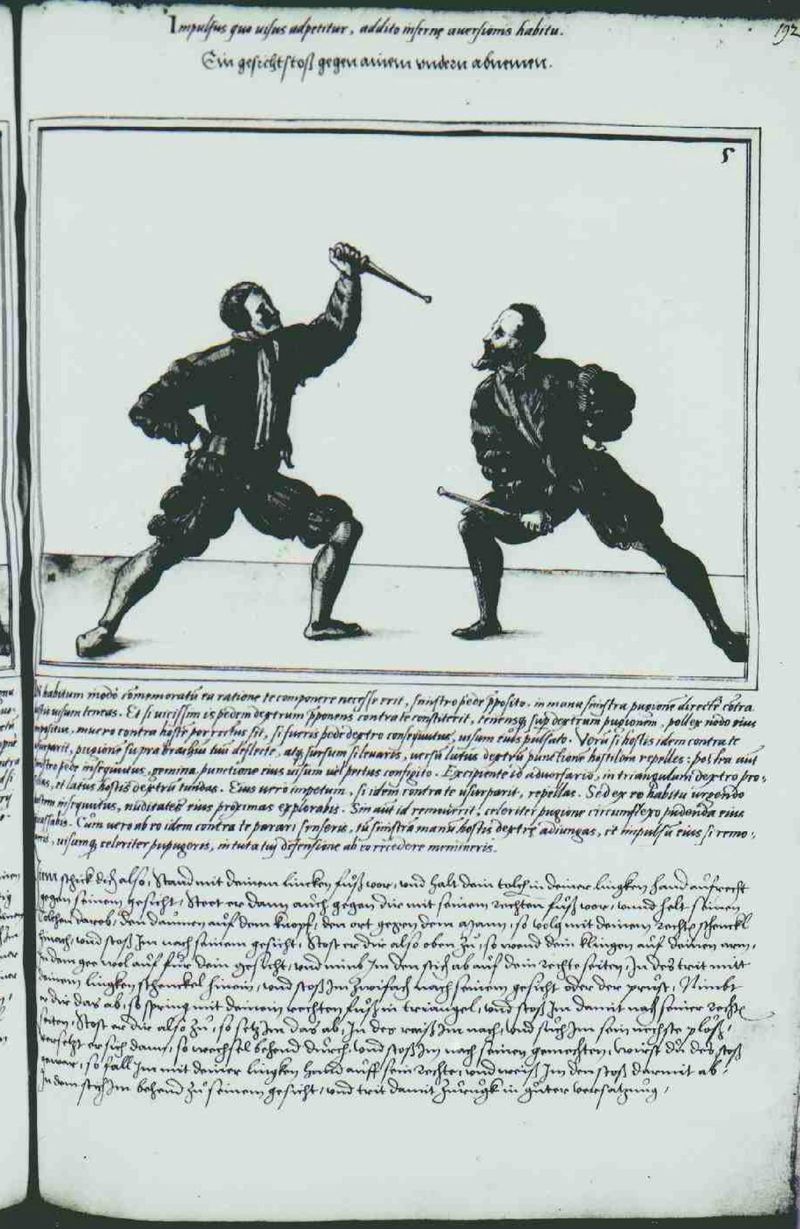 Impulsus quo uisus adpetitur, addito inferne auersionis habitu.
192
Ein gesichtstoß gegen ainem vndern abnemen.
5
habitum modo commemoratum ea ratione te componere necesse erit, sinistro pede proposito, in manu sinistra pugionem directe contra
uisum teneas. Et si uicissim is pedem dextrum proponens contra te constiterit, tenensque sup dextrum pugionem, pollex nodo eius
mucro contra hostem porrectus sit, si fueris pede dextro consequutus, uisum eius pulsato. Verum si hostis idem contra te
usurparit, pugione supra brachium tuum deflecte, atque sursum si leuaris, uersum latus dextrum punctione hostilem repelles: postea aut
pede insequutus, gemina punctione eius uisum uel pectus configito. Excipiente id aduersario, in triangulum dextro pro-
et latus hostis dextrum tundas. Eius uero impetum, si idem contra te usurparit, repellas. Sed ex eo habitu
insequutus, nuditates eius proximas explorabis. Sin aut id remouerit, celeriter pugione circumflexo pudenda eius
quassabis. Cum uero ab eo idem contra te parari senseris, tu sinistra manu hostis dextre adiungas, et impulsum eius si remo-
uisumque celeriter pupugeris, in tuta tui defensione ab eo recedere memineris.
schick dich also, Stand mit deinem lincken fuß vor, vnd halt dein tolch in deiner lingken hand aufrecht
gegen seinem gesicht, Steet er dann auch gegen dir mit seinem rechten fuß vor, vnnd helt seinen
Tolchen darob, den daumen auf dem knopf, den ort gegen dem Mann, so volg mit deinem rechten schenckl
hinach, vnd stoß Im nach seinem gesicht, Stost er dir also oben zu, so wend dein klingen auf deinen arm,
Indem gee wol auf für dein gesicht, vnd nimb Im den stich ab auf dein rechte seiten, In des trit mit
deinem lingken schenckel hinein, vnd stoß Im zwifach nach seinem gesicht oder der prust, Nimbt
er dir das ab, so spring mit deinem rechten fuß in triangel, vnd stoß Im damit nach seiner rechten
seiten, Stost er dir also zu, so setz Im das ab, In des raiß Im nach, vnd stich Im sein nechste plöß,
versetzt er sich dann, so wechsel behend durch, vnd stoß Im nach seinen gemechten, wirst du des stoß
gewar, so fall Im mit deiner lingken hand auff sein rechte, vnd weiß Im den stoß darmit ab,
In dem stich Im behend zu seinem gesicht, vnd trit damit zurugk in guter versatzung,